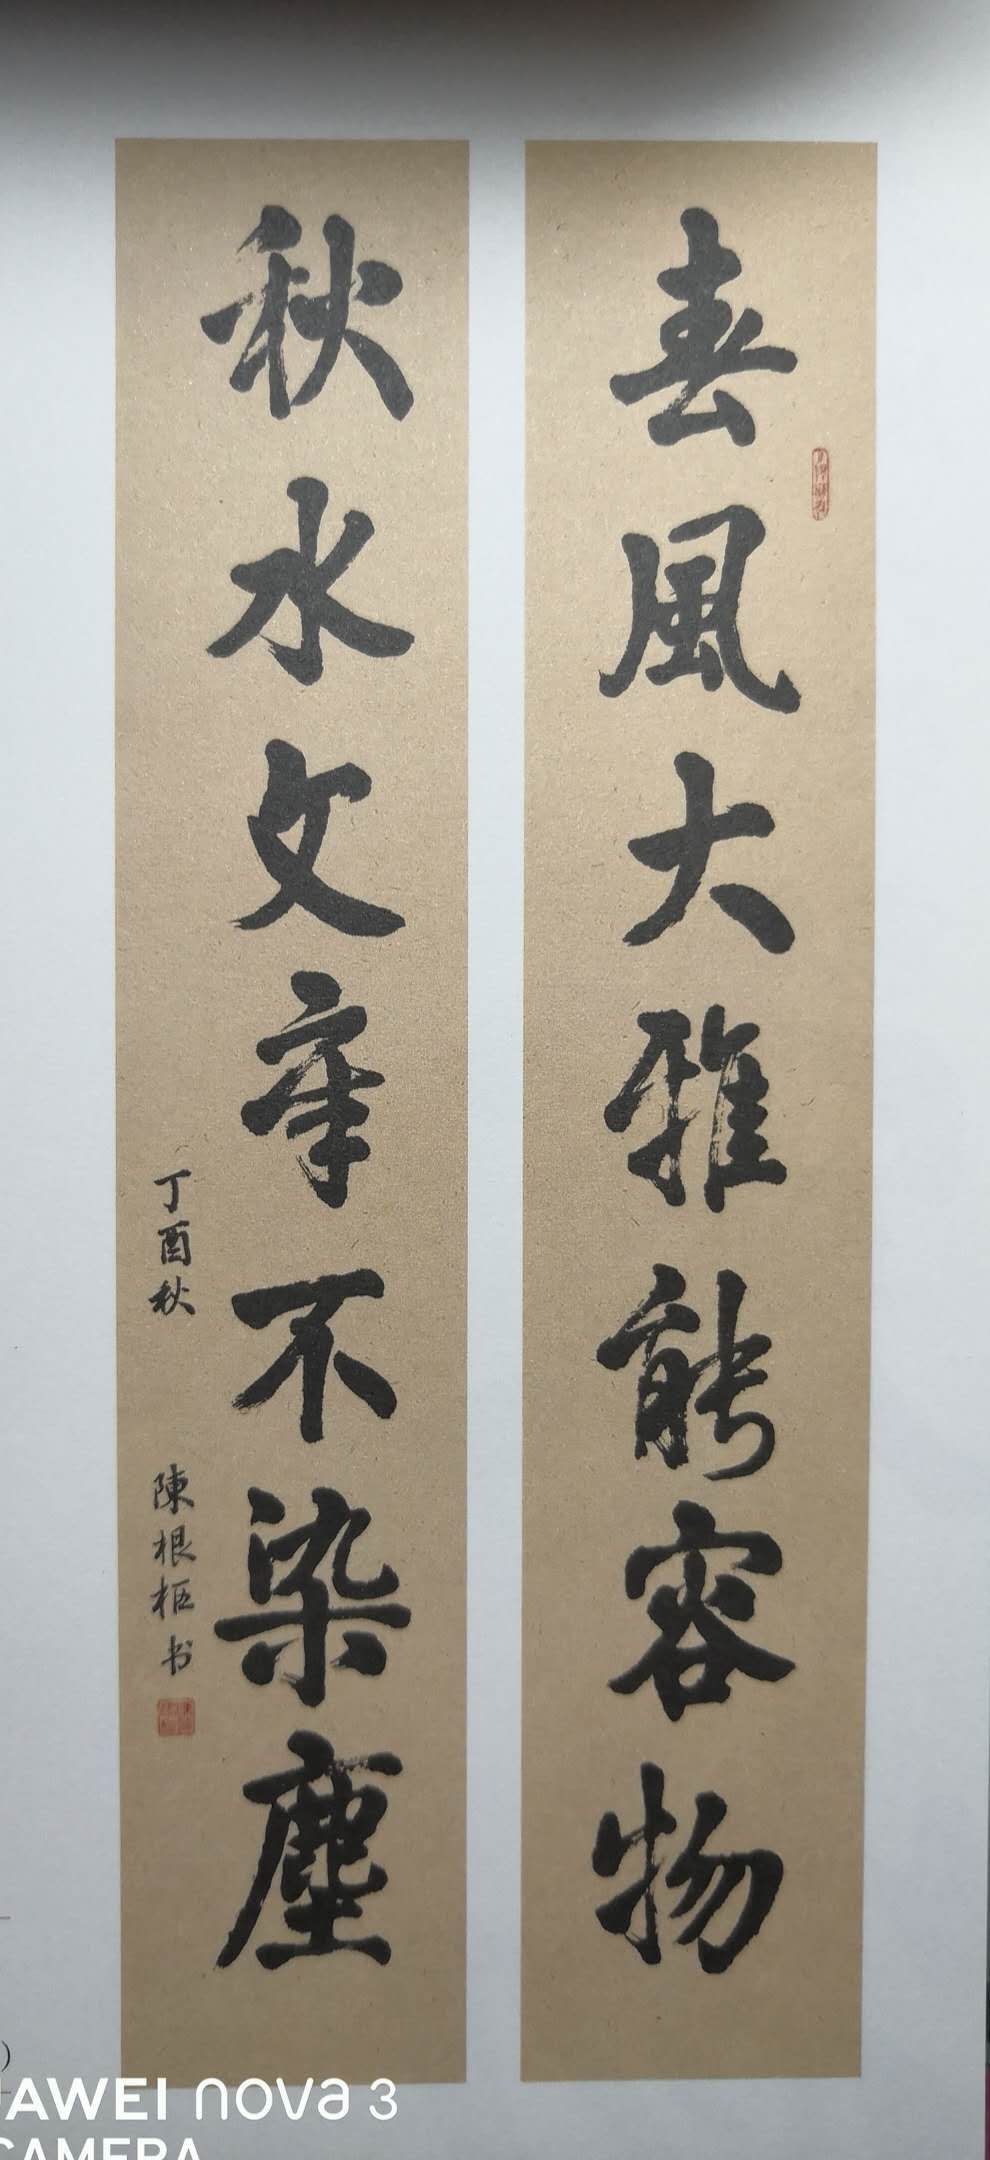 春風大雅能容物
秋水文章不染塵
丁酉秋
陳根柜书
)
HUAWEI nova 3
CAMERA